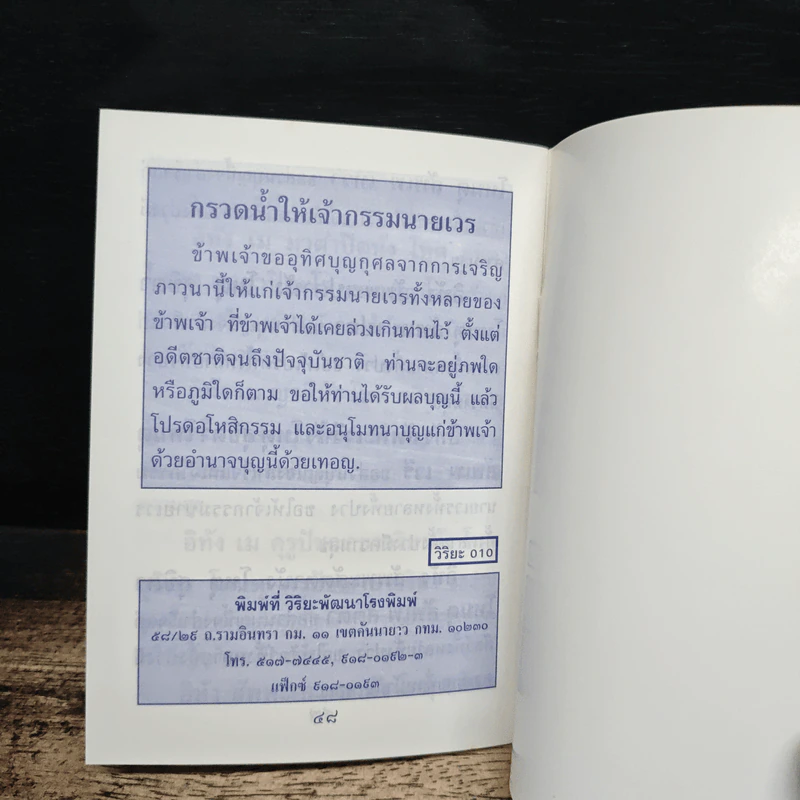 กรวดน้ำให้เจ้ากรรมนายเวร
ข้าพเจ้าขออุทิศบุญกุศลจากการเจริญ
ภาวนานี้ให้แก่เจ้ากรรมนายเวรทั้งหลายของ
ข้าพเจ้า ที่ข้าพเจ้าได้เคยล่วงเกินท่านไว้ ตั้งแต่
อดีตชาติจนถึงปัจจุบันชาติ ท่านจะอยู่ภพใด
หรือภูมิใดก็ตาม ขอให้ท่านได้รับผลบุญนี้ แล้ว
โปรดอโหสิกรรม และอนุโมทนาบุญแก่ข้าพเจ้า
ด้วยอำนาจบุญนี้ด้วยเทอญ.
วิริยะ 010
พิมพ์ที่ วิริยะพัฒนาโรงพิมพ์
๕๘/๒๙ ถ.รามอินทรา กม. ๑๑ เขตคันนายาว กทม. ๑๐๒๓๐
โทร. ๕๑๗-๗๔๔๕, ๙๑๘-๐๑๙๒-๓
แฟ็กซ์ ๙๑๘-๐๑๙๓
๔๘